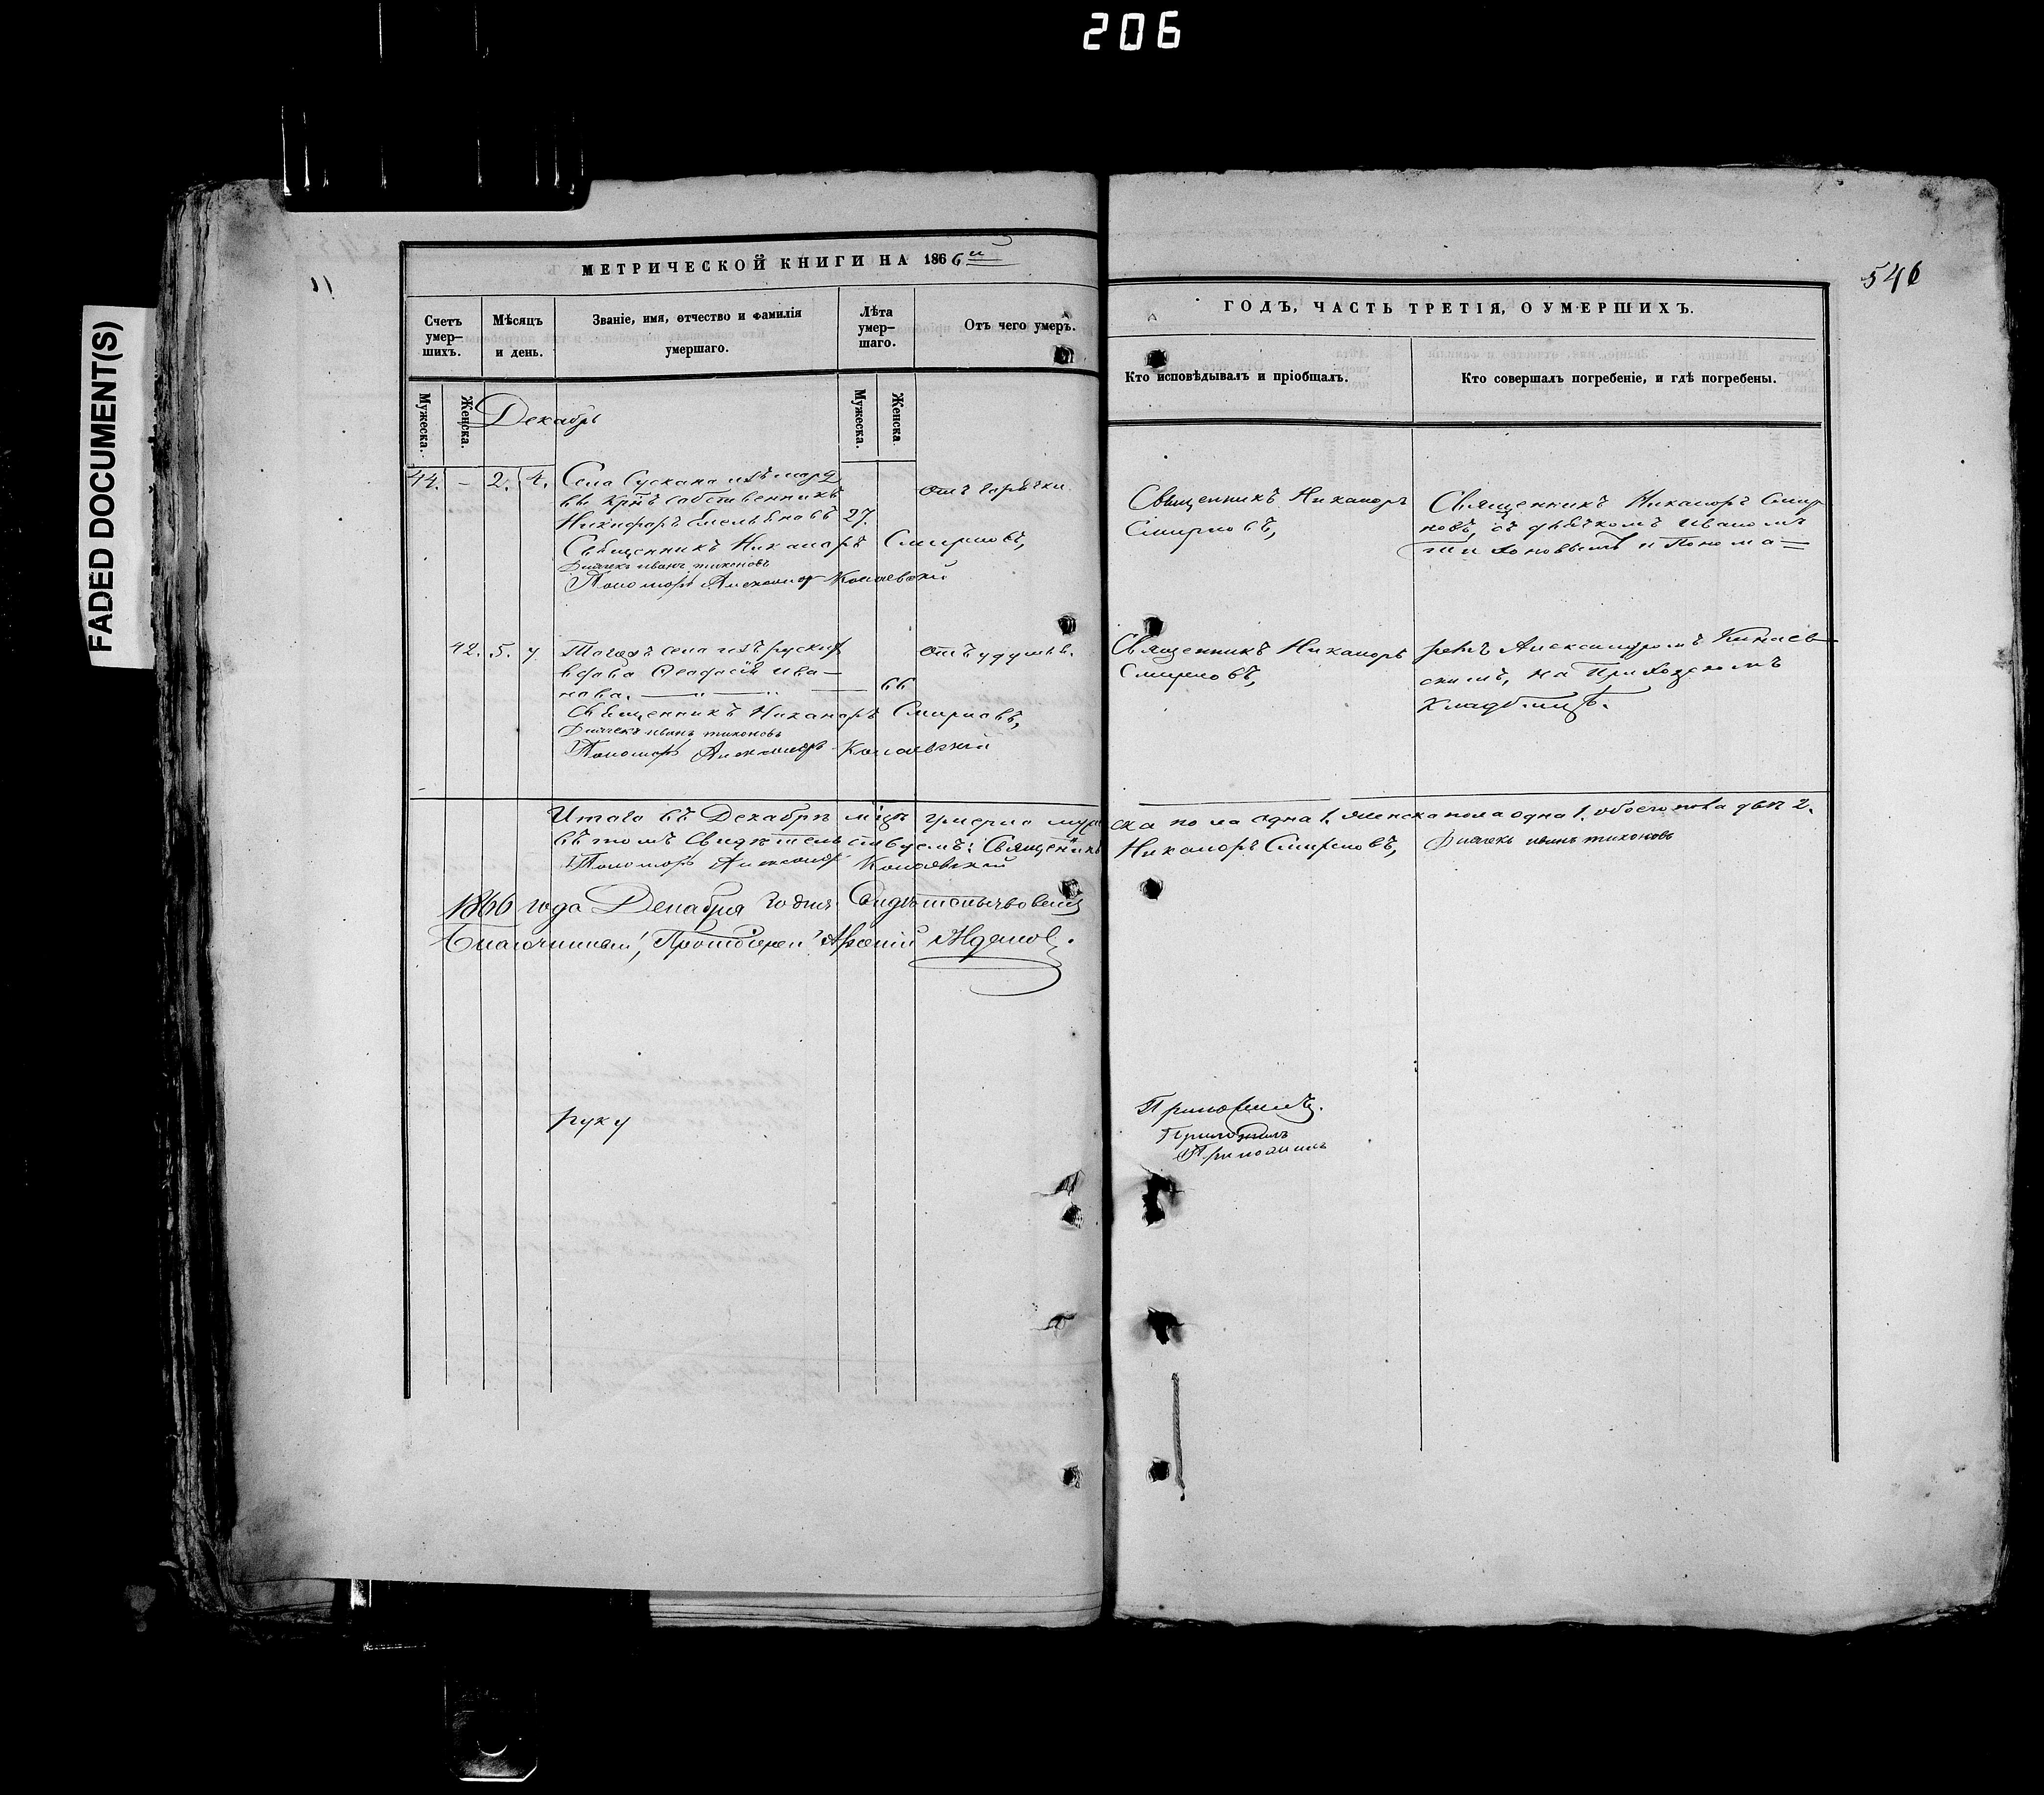 206
FADED DOCUMENT(S)
МЕТРИЧЕСКОЙ КНИГИ НА 1866й
Счетъ умер-шихъ.
Мѣсяцъ и день.
Званіе, имя, отчество и фамилія умершаго.
Лѣта умер-шаго.
Отъ чего умеръ.
Мужеска.
Женска.
Мужеска.
Женска
Декабрь
44. – 2. 4. Села Сускана изъ морд
вы крнъ собственникъ
Никифоръ Емельяновъ 27.
отъ горячки
Священникъ Никаноръ Смирновъ,
Дьячекъ иванъ тихоновъ
Пономарь Александр
42. 5. 7 Тогожъ села изъ руских
вдова Ѳеодосія Ива–
нова. 66
отъ удушья.
Священникъ Никаноръ Смирновъ,
Дьячекъ иванъ тихоновъ
Пономарь Александръ
Итого въ Декабрѣ мцѣ умерло муже
въ томъ Свидѣтельствуемъ: Священникъ
Пономарь Александр
1866 года Декабря дня Свидѣтельствовалъ
Благочинный, Протоіерей Арсеній
руку
546
ГОДЪ, ЧАСТЬ ТРЕТІЯ, О УМЕРШИХЪ.
Кто исповѣдывалъ и пріобщалъ.
Кто совершалъ погребеніе, и гдѣ погребены.
Священникъ Никаноръ
Смирновъ,
Священникъ Никаноръ Смир
новъ, съ дьячкомъ Иваномъ
тихоновымъ и Понома=
Священникъ Никаноръ
Смирновъ,
ремъ Александромъ
скимъ, на Приходскомъ
Кладбищѣ.
ска пола одна 1. женска пола одна 1. обоего пола двѣ 2.
Никаноръ Смирновъ, Дьячекъ иванъ тихоновъ
Приложилъ.
Приложилъ
Приложилъ